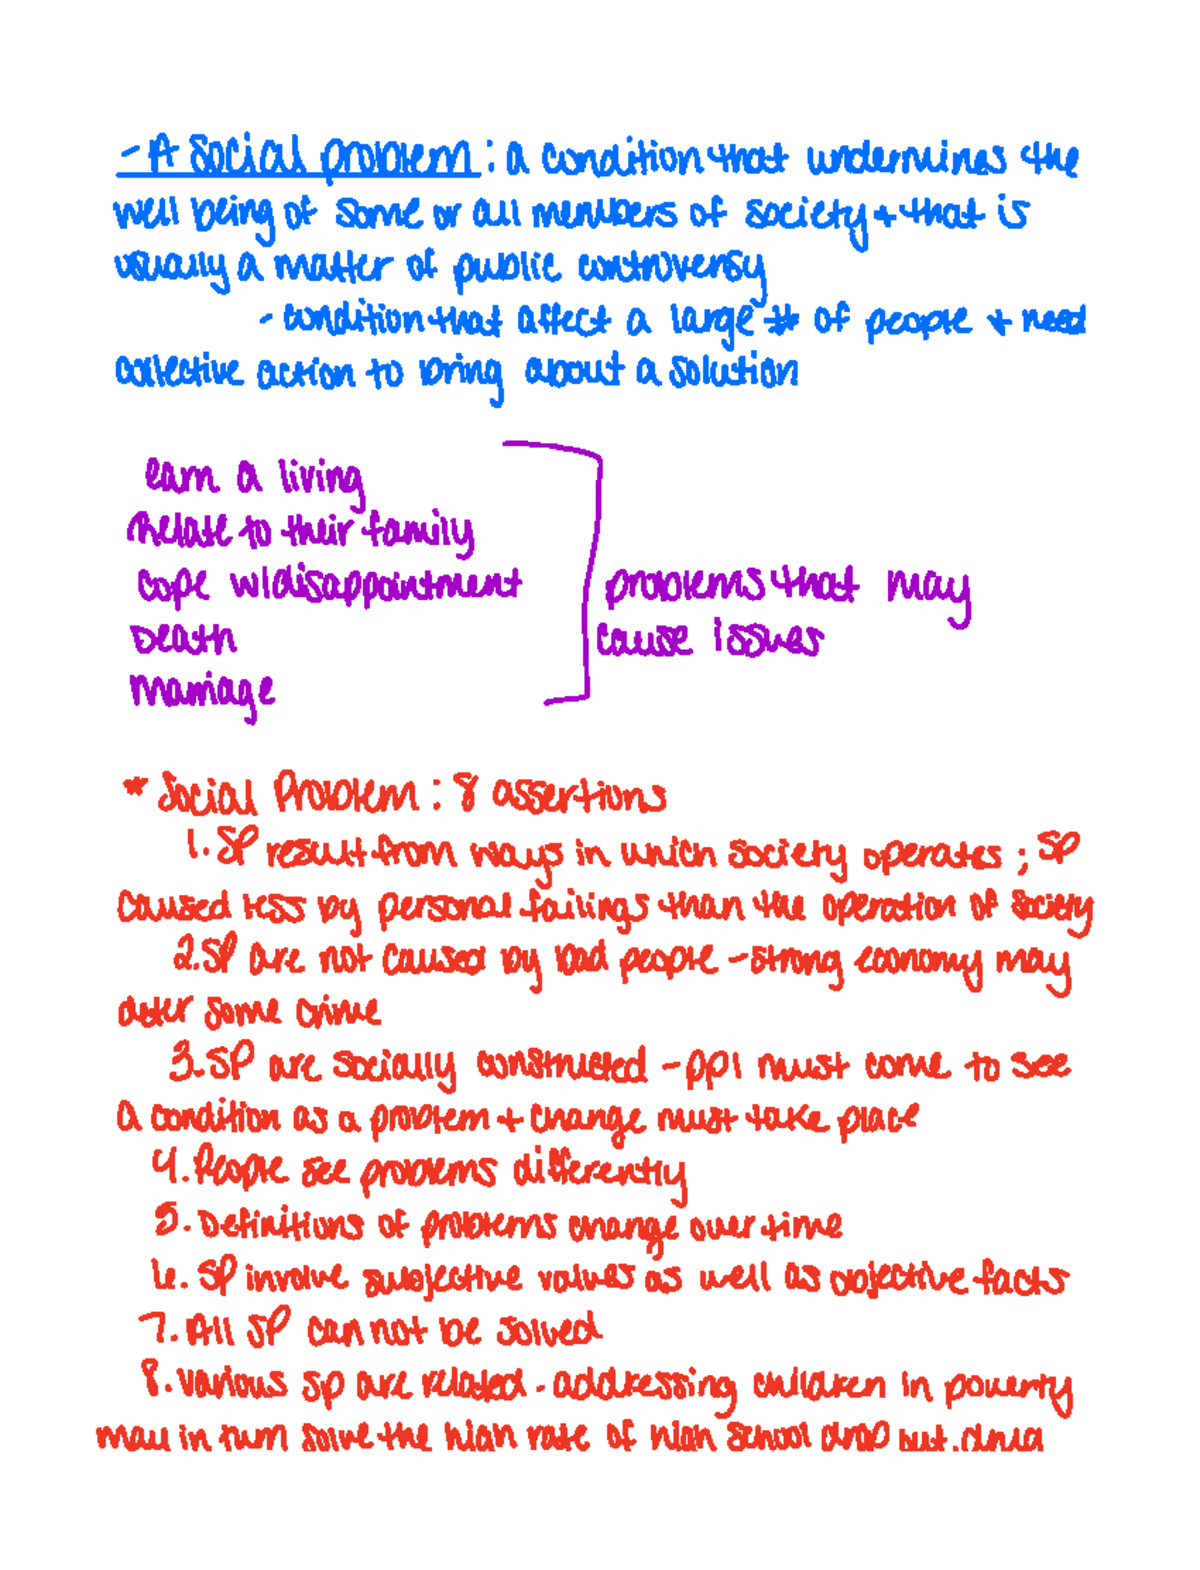 - A Social problem : a condition that undermines the
well being of some or all members of society + that is
usually a matter of public controversy
- condition that affect a large # of people + need
collective action to bring about a solution
earn a living
Relate to their family
cope w/disappointment
Death
Marriage
problems that may
cause issues
* Social Problem : 8 assertions
1. SP result from ways in which society operates ; SP
caused less by personal failings than the operation of society
2. SP are not caused by bad people - strong economy may
deter some crime
3. SP are socially constructed - ppl must come to see
a condition as a problem + change must take place
4. People see problems differently
5. Definitions of problems change over time
6. SP involve subjective values as well as objective facts
7. All SP can not be solved
8. Various SP are related - addressing children in poverty
may in turn solve the high rate of high school drop out, drug